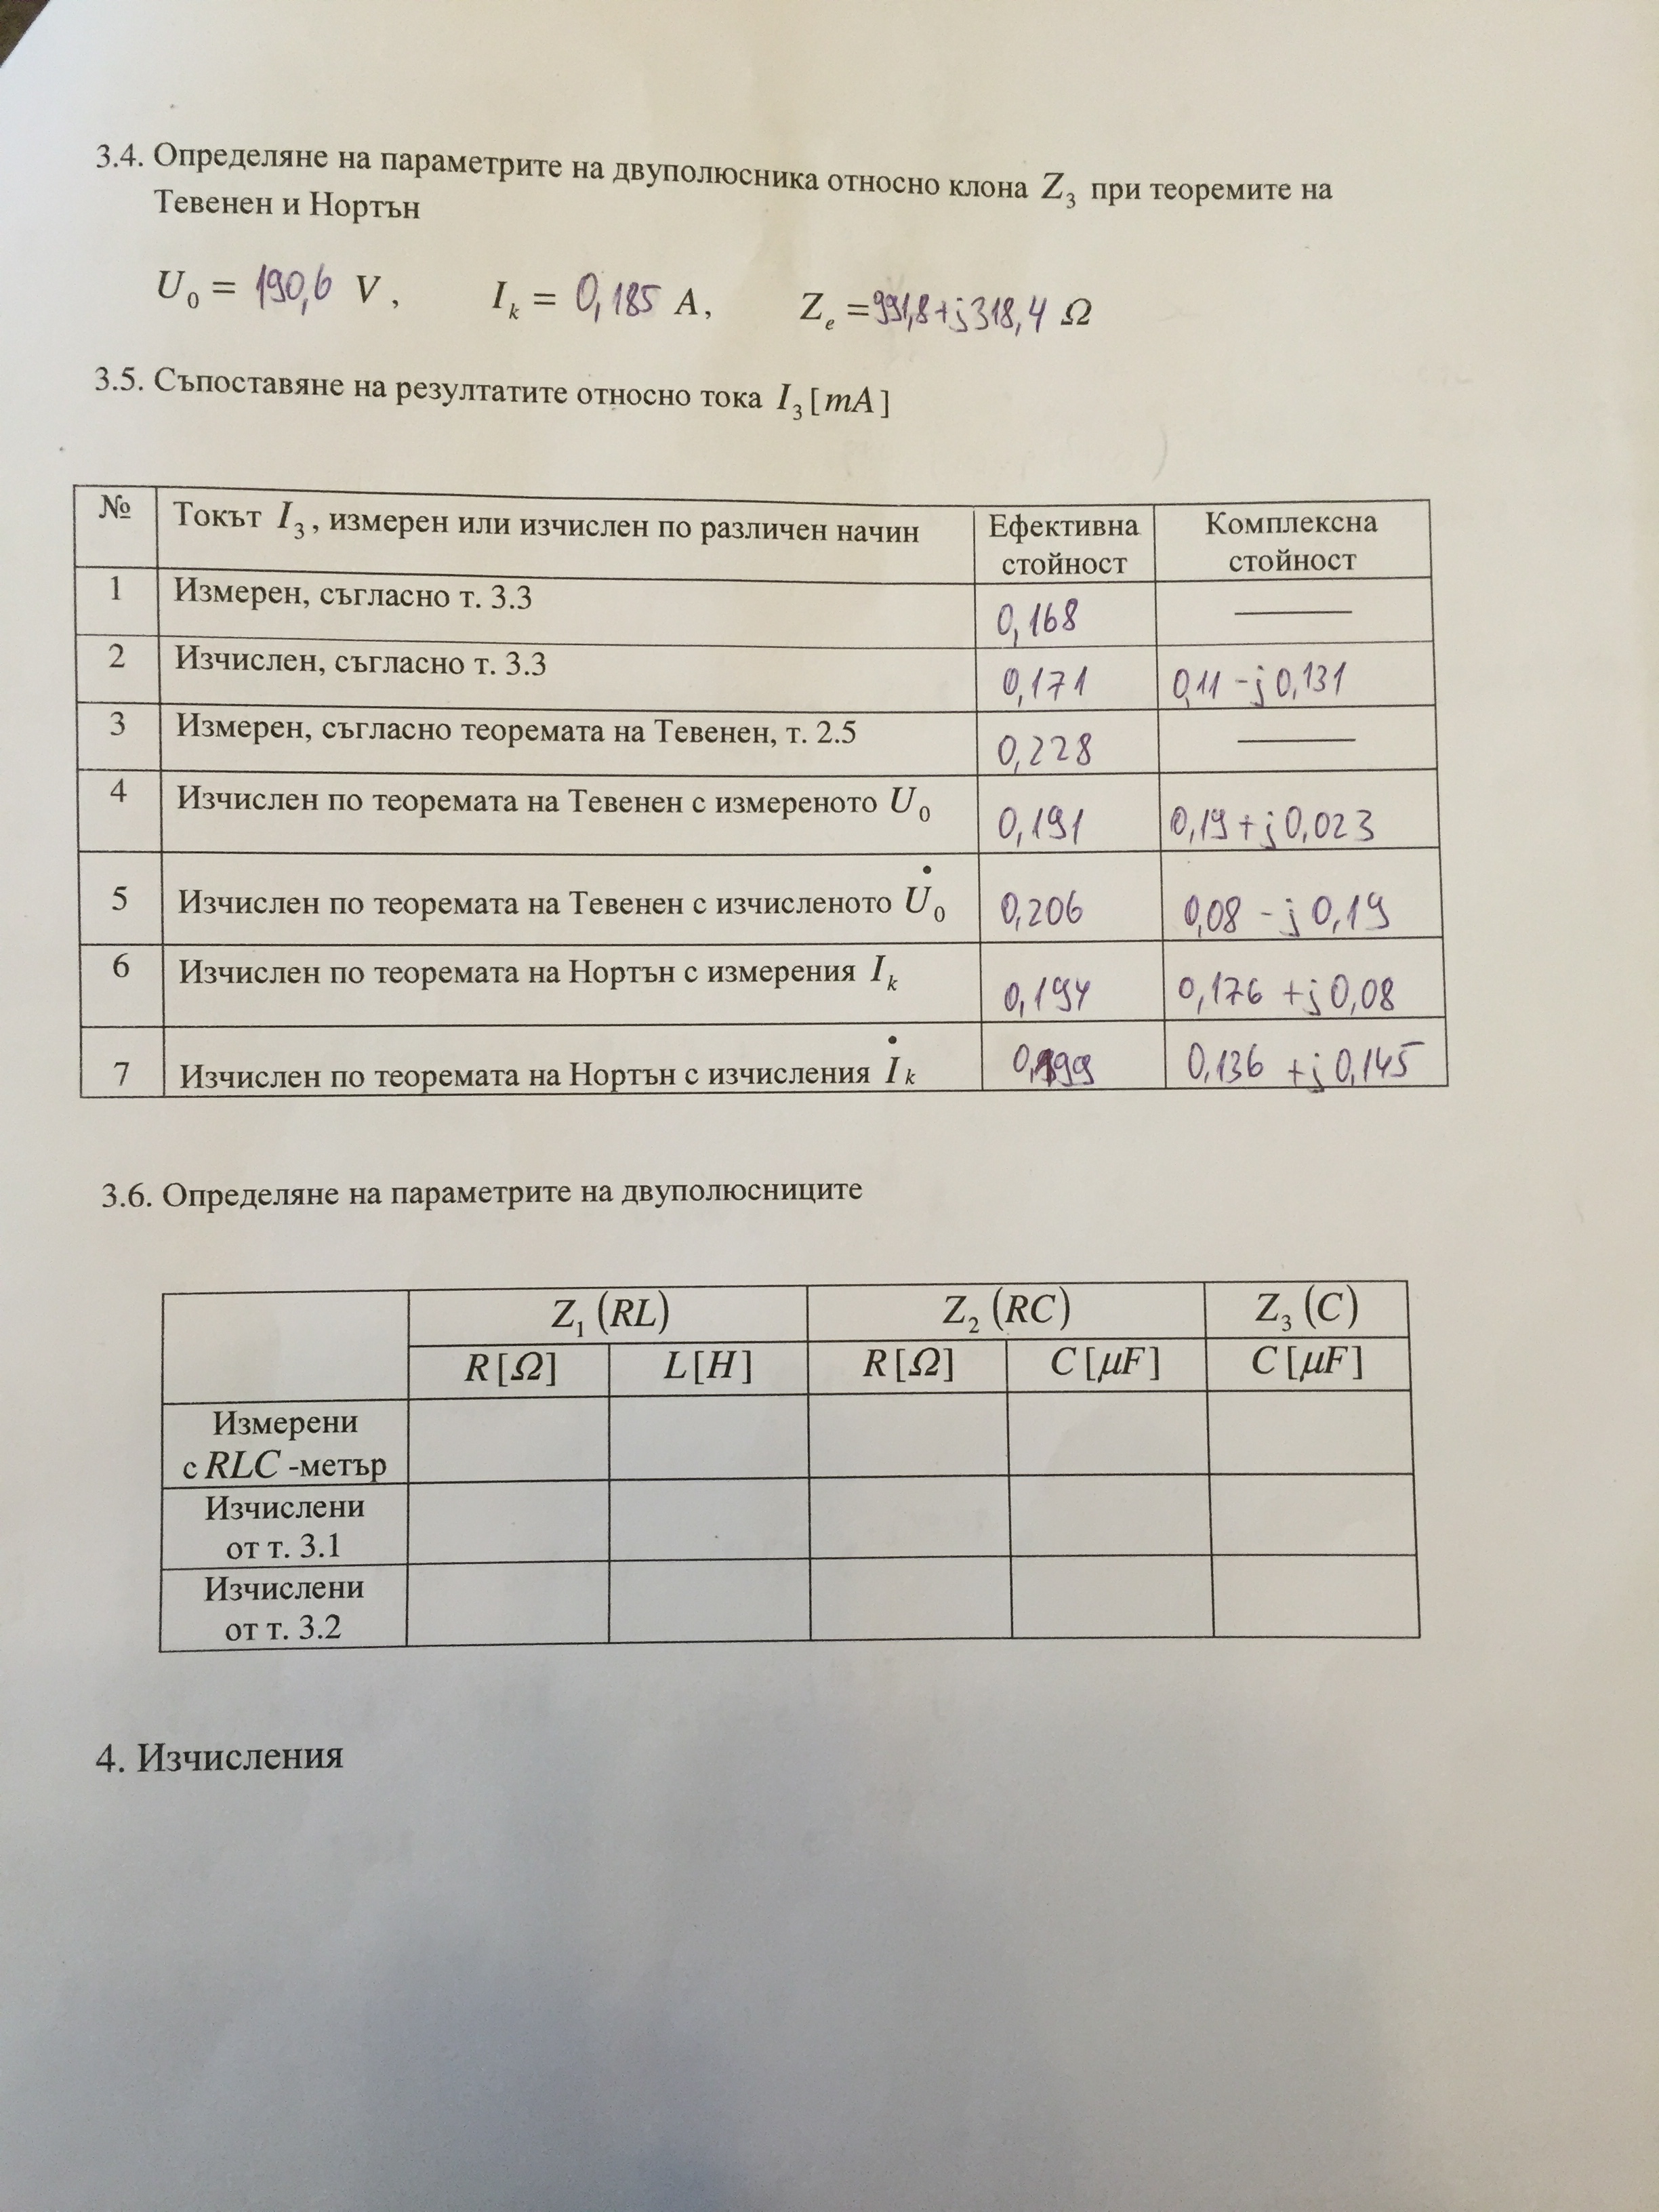 3.4. Определяне на параметрите на двуполюсника относно клона Z₃ при теоремите на
Тевенен и Нортън
U₀ = 190,6 V , I_k = 0,185 A , Z_e = 991,8+j318,4 Ω
3.5. Съпоставяне на резултатите относно тока I₃ [mA]
№ Токът I₃, измерен или изчислен по различен начин Ефективна стойност Комплексна стойност
1 Измерен, съгласно т. 3.3 0,168 —
2 Изчислен, съгласно т. 3.3 0,171 0,11 - j0,131
3 Измерен, съгласно теоремата на Тевенен, т. 2.5 0,228 —
4 Изчислен по теоремата на Тевенен с измереното U₀ 0,191 0,19 + j0,023
5 Изчислен по теоремата на Тевенен с изчисленото U̇₀ 0,206 0,08 - j0,19
6 Изчислен по теоремата на Нортън с измерения I_k 0,194 0,176 + j0,08
7 Изчислен по теоремата на Нортън с изчисления İ_k 0,199 0,136 + j0,145
3.6. Определяне на параметрите на двуполюсниците
Z₁ (RL) Z₂ (RC) Z₃ (C)
R[Ω] L[H] R[Ω] C[μF] C[μF]
Измерени
с RLC -метър
Изчислени
от т. 3.1
Изчислени
от т. 3.2
4. Изчисления